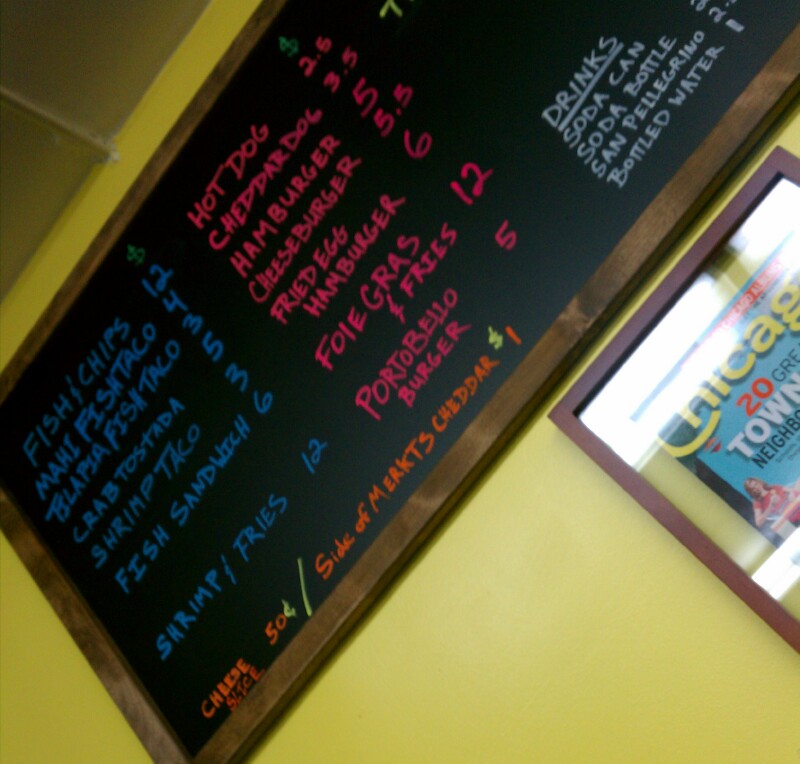 $
FISH & CHIPS 12
MAHI FISH TACO 4
TILAPIA FISH TACO 3
CRAB TOSTADA 5
SHRIMP TACO 3
FISH SANDWICH 6
SHRIMP & FRIES 12
$
HOT DOG 2.5
CHEDDAR DOG 3.5
HAMBURGER 5
CHEESEBURGER 5.5
FRIED EGG
HAMBURGER 6
FOIE GRAS
& FRIES 12
PORTOBELLO
BURGER 5
CHEESE
SLICE 50¢ / Side of MERKTS CHEDDAR $1
DRINKS
SODA CAN
SODA BOTTLE
SAN PELLEGRINO
BOTTLED WATER 1
Chicag
20 GRE
TOWN
NEIGHBO